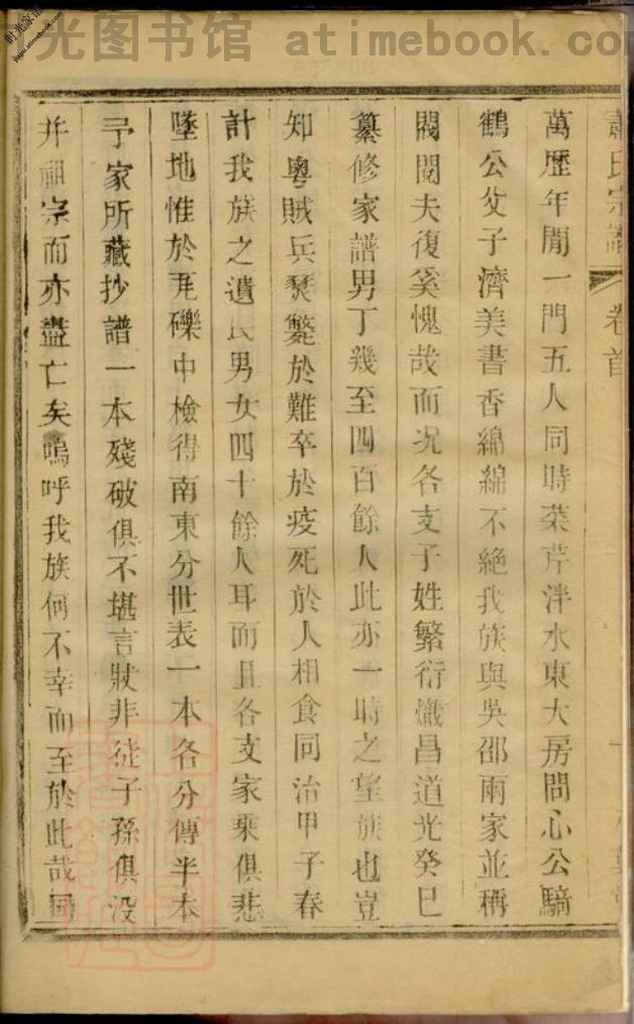 光图书馆 atimebook.com
氏宗譜 卷首
萬歷年間一門五人同時菜芹泮水東大房問心公騎
鶴公父子濟美書香綿綿不絕我族與吳邵兩家並稱
閥閱夫復奚愧哉而况各支子姓繁衍熾昌道光癸巳
纂修家譜男丁幾至四百餘人此亦一時之望族也豈
知粵賊兵燹斃於難卒於疫死於人相食同治甲子春
計我族之遺民男女四十餘人耳而且各支家乘俱悲
墜地惟於瓦礫中檢得南東分世表一本各分傳半本
予家所藏抄譜一本殘破俱不堪言狀非徒子孫俱沒
并祖宗而亦盡亡矣嗚呼我族何不幸而至於此哉同